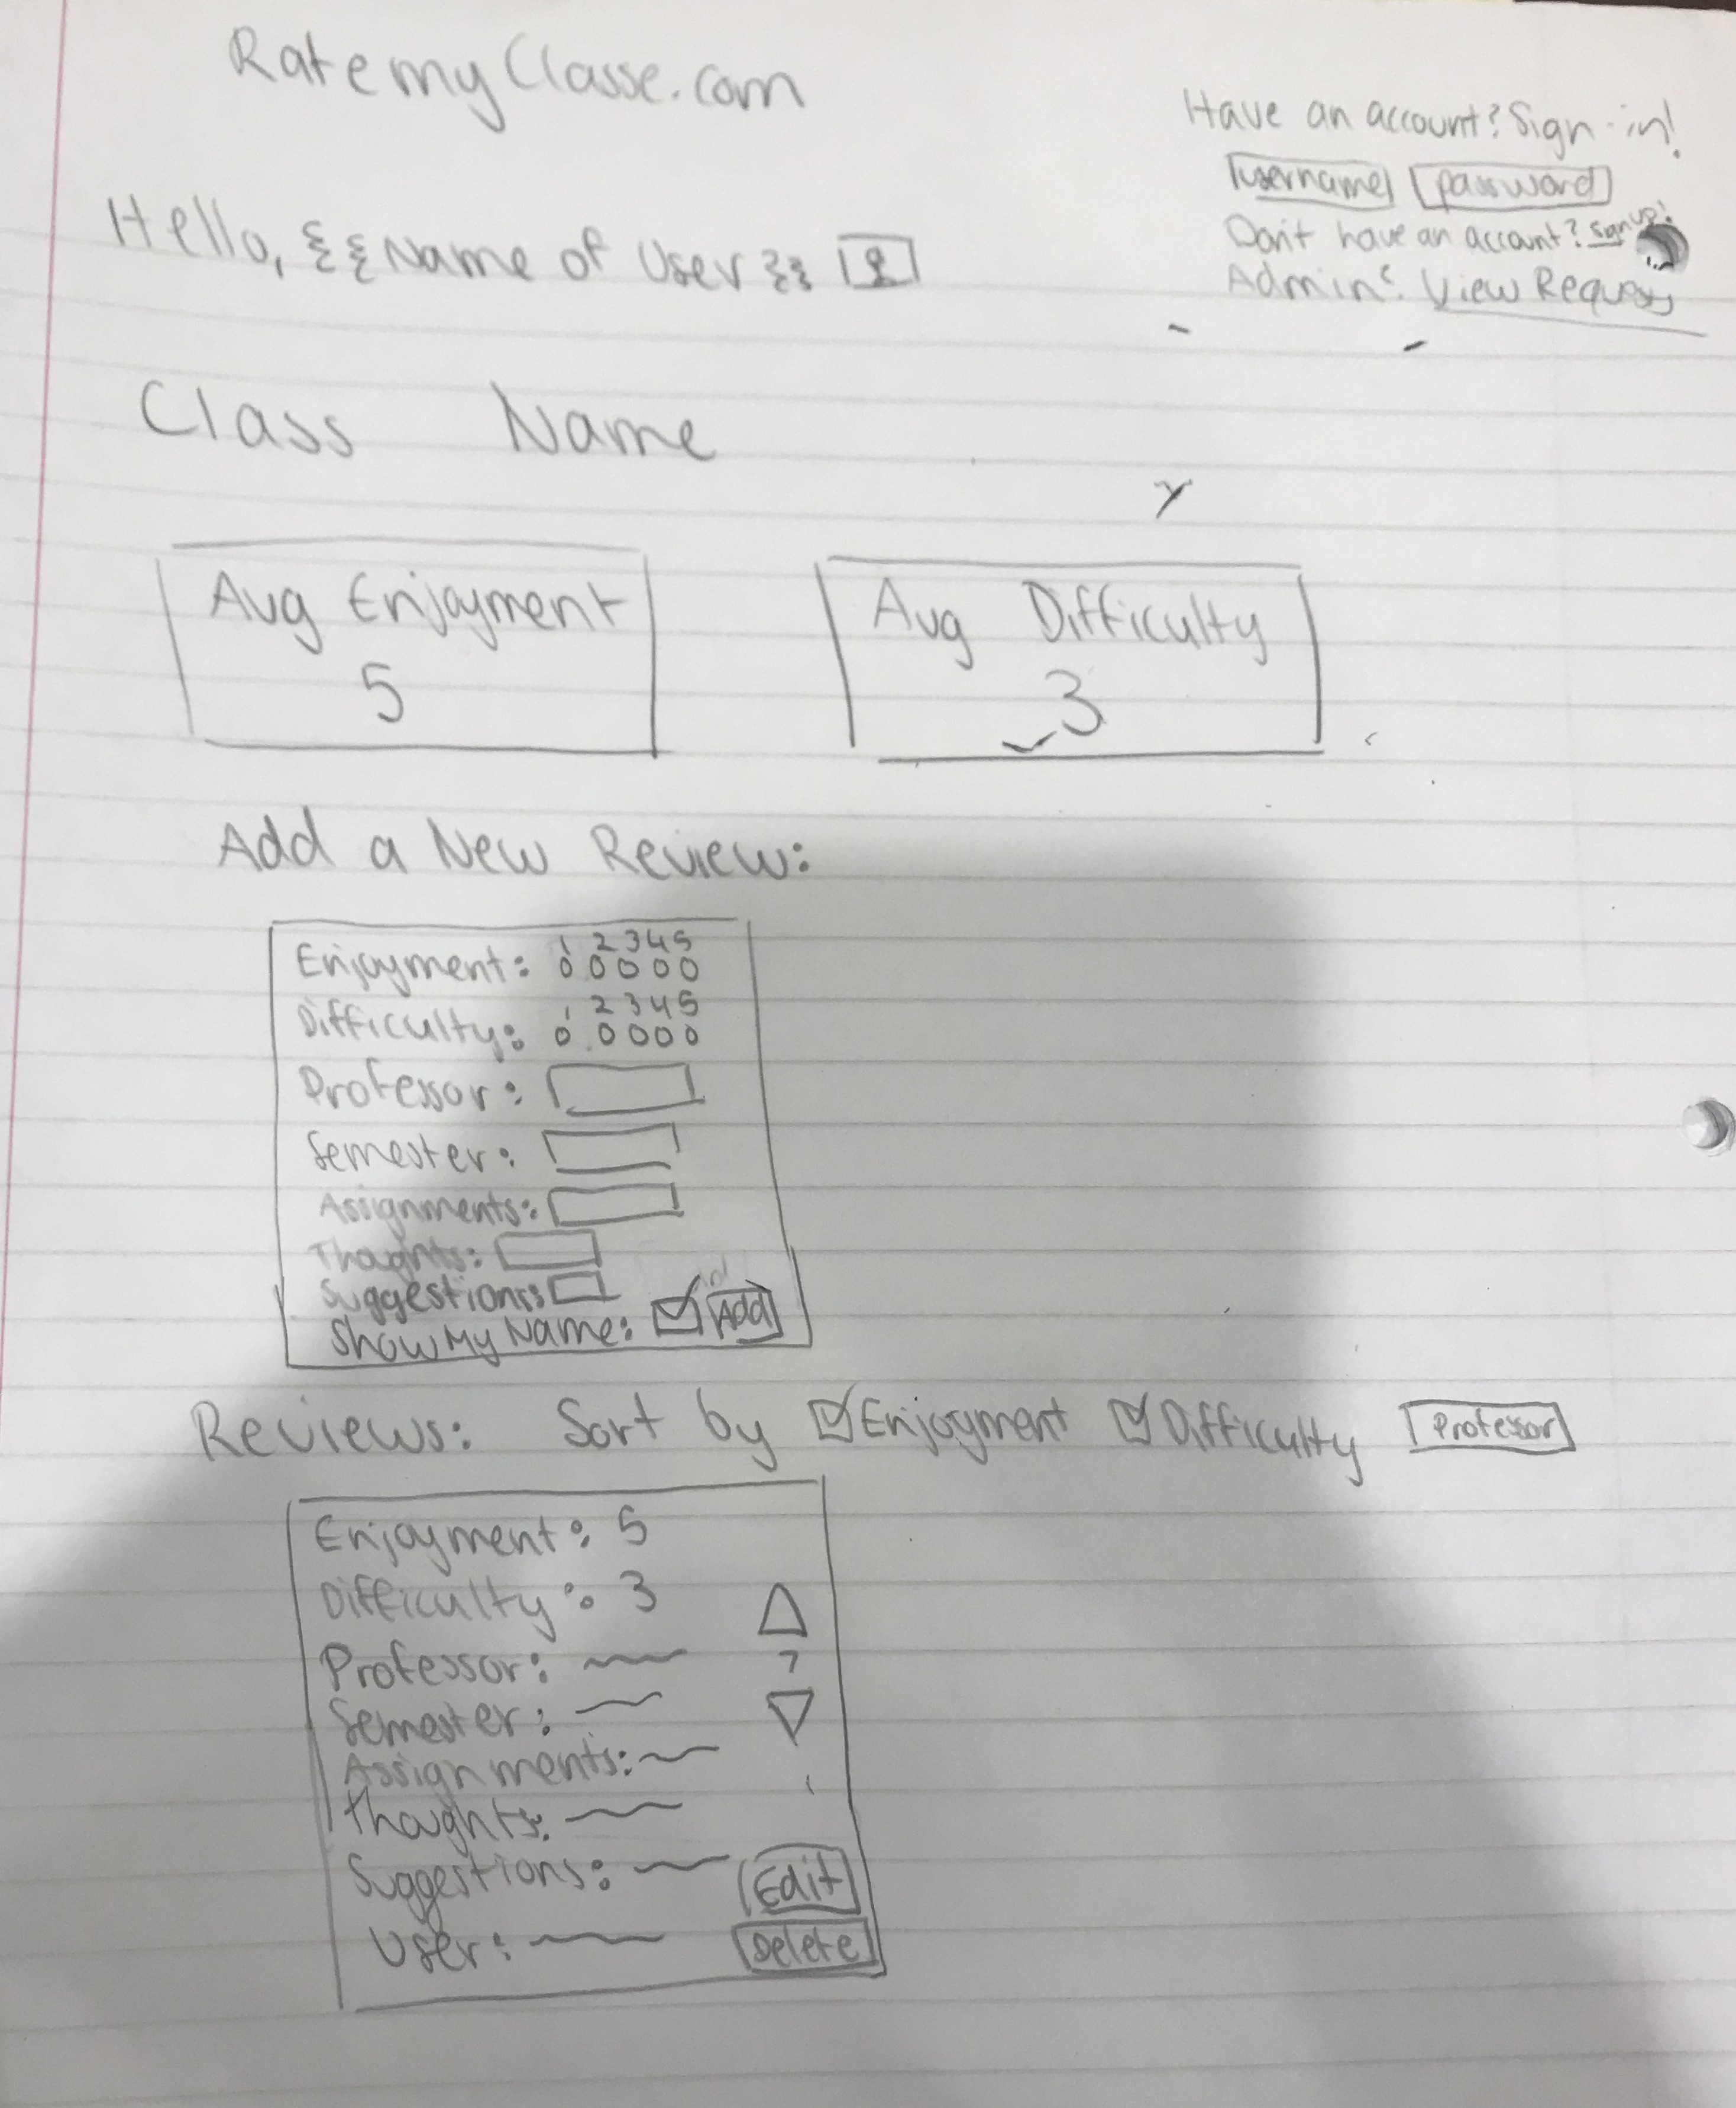 RatemyClasse.com
Have an account? Sign-in!
username password
Don't have an account? Sign up!
Admin? View Requests
Hello, {{Name of User}}
Class Name
Avg Enjoyment
5
Avg Difficulty
3
Add a New Review:
1 2 3 4 5
Enjoyment: 0 0 0 0 0
1 2 3 4 5
Difficulty: 0 0 0 0 0
Professor:
Semester:
Assignments:
Thoughts:
Suggestions:
Show My Name: Add
Reviews: Sort by Enjoyment Difficulty Professor
Enjoyment: 5
Difficulty: 3
Professor: 7
Semester:
Assignments:
Thoughts:
Suggestions: Edit
User: Delete